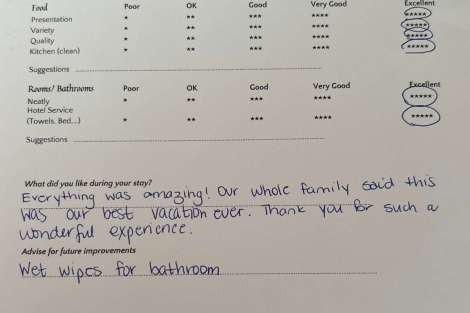 Food Poor OK Good Very Good Excellent
Presentation * ** *** **** *****
Variety * ** *** **** *****
Quality * ** *** **** *****
Kitchen (clean) * ** *** **** *****
Suggestions
Rooms/ Bathrooms Poor OK Good Very Good Excellent
Neatly * ** *** **** *****
Hotel Service
(Towels, Bed...) * ** *** **** *****
Suggestions
What did you like during your stay?
Everything was amazing! Our whole family said this
was our best vacation ever. Thank you for such a
wonderful experience.
Advise for future improvements
Wet wipes for bathroom